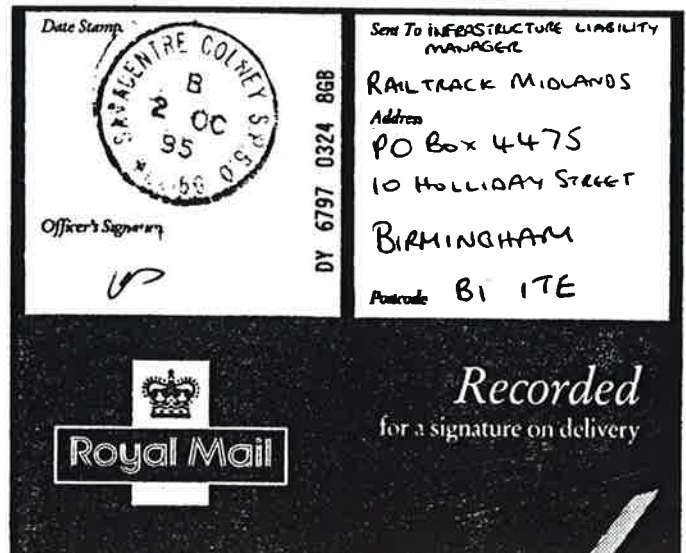 Date Stamp
SAVACENTRE COLNEY S.P.S.O
B
2 OC
95
Officer's Signature
DY 6797 0324 8GB
Sent To INFRASTRUCTURE LIABILITY
MANAGER
RAILTRACK MIDLANDS
Address
PO BOX 4475
10 HOLLIDAY STREET
BIRMINGHAM
Postcode B1 1TE
Royal Mail
Recorded
for a signature on delivery